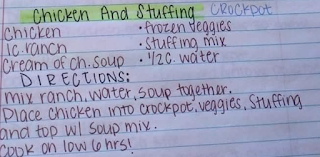 Chicken And Stuffing CROCKPOT
Chicken • frozen veggies
1c. ranch • Stuffing mix
Cream of ch. soup • 1/2 c. water
DIRECTIONS:
mix ranch, water, soup together.
Place chicken into crockpot, veggies, stuffing
and top w/ soup mix.
Cook on low 6 hrs!